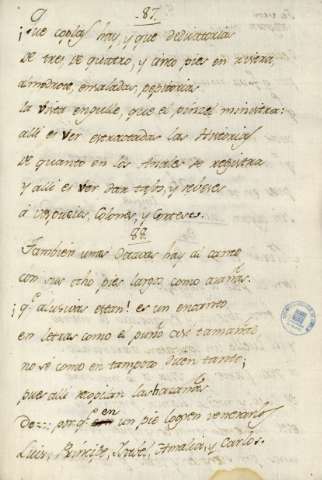 87.
¡Que coplas hay, y que dedicatorias
de tres, de quatro, y cinco pies en ristra,
almodrote, ensaladas, pepitorias
la vista engulle, que el pincel ministra:
alli es ver extractadas las Historias
de quanto en los Anales se registra
y alli es ver dar tajos, y reveses
á Colores, y
88.
Tambien unas Octavas hay al canto
con sus ocho pies largos como arañas.
¡q.e alusivas eran! es un encanto
en letras como el puño asi tamañas
no sé como en tampoco dicen tanto;
pues alli recopilan las hazañas
De q.e en un pie logren venerarlos
Luis, Principe, Isabel, Amalia, y Carlos.